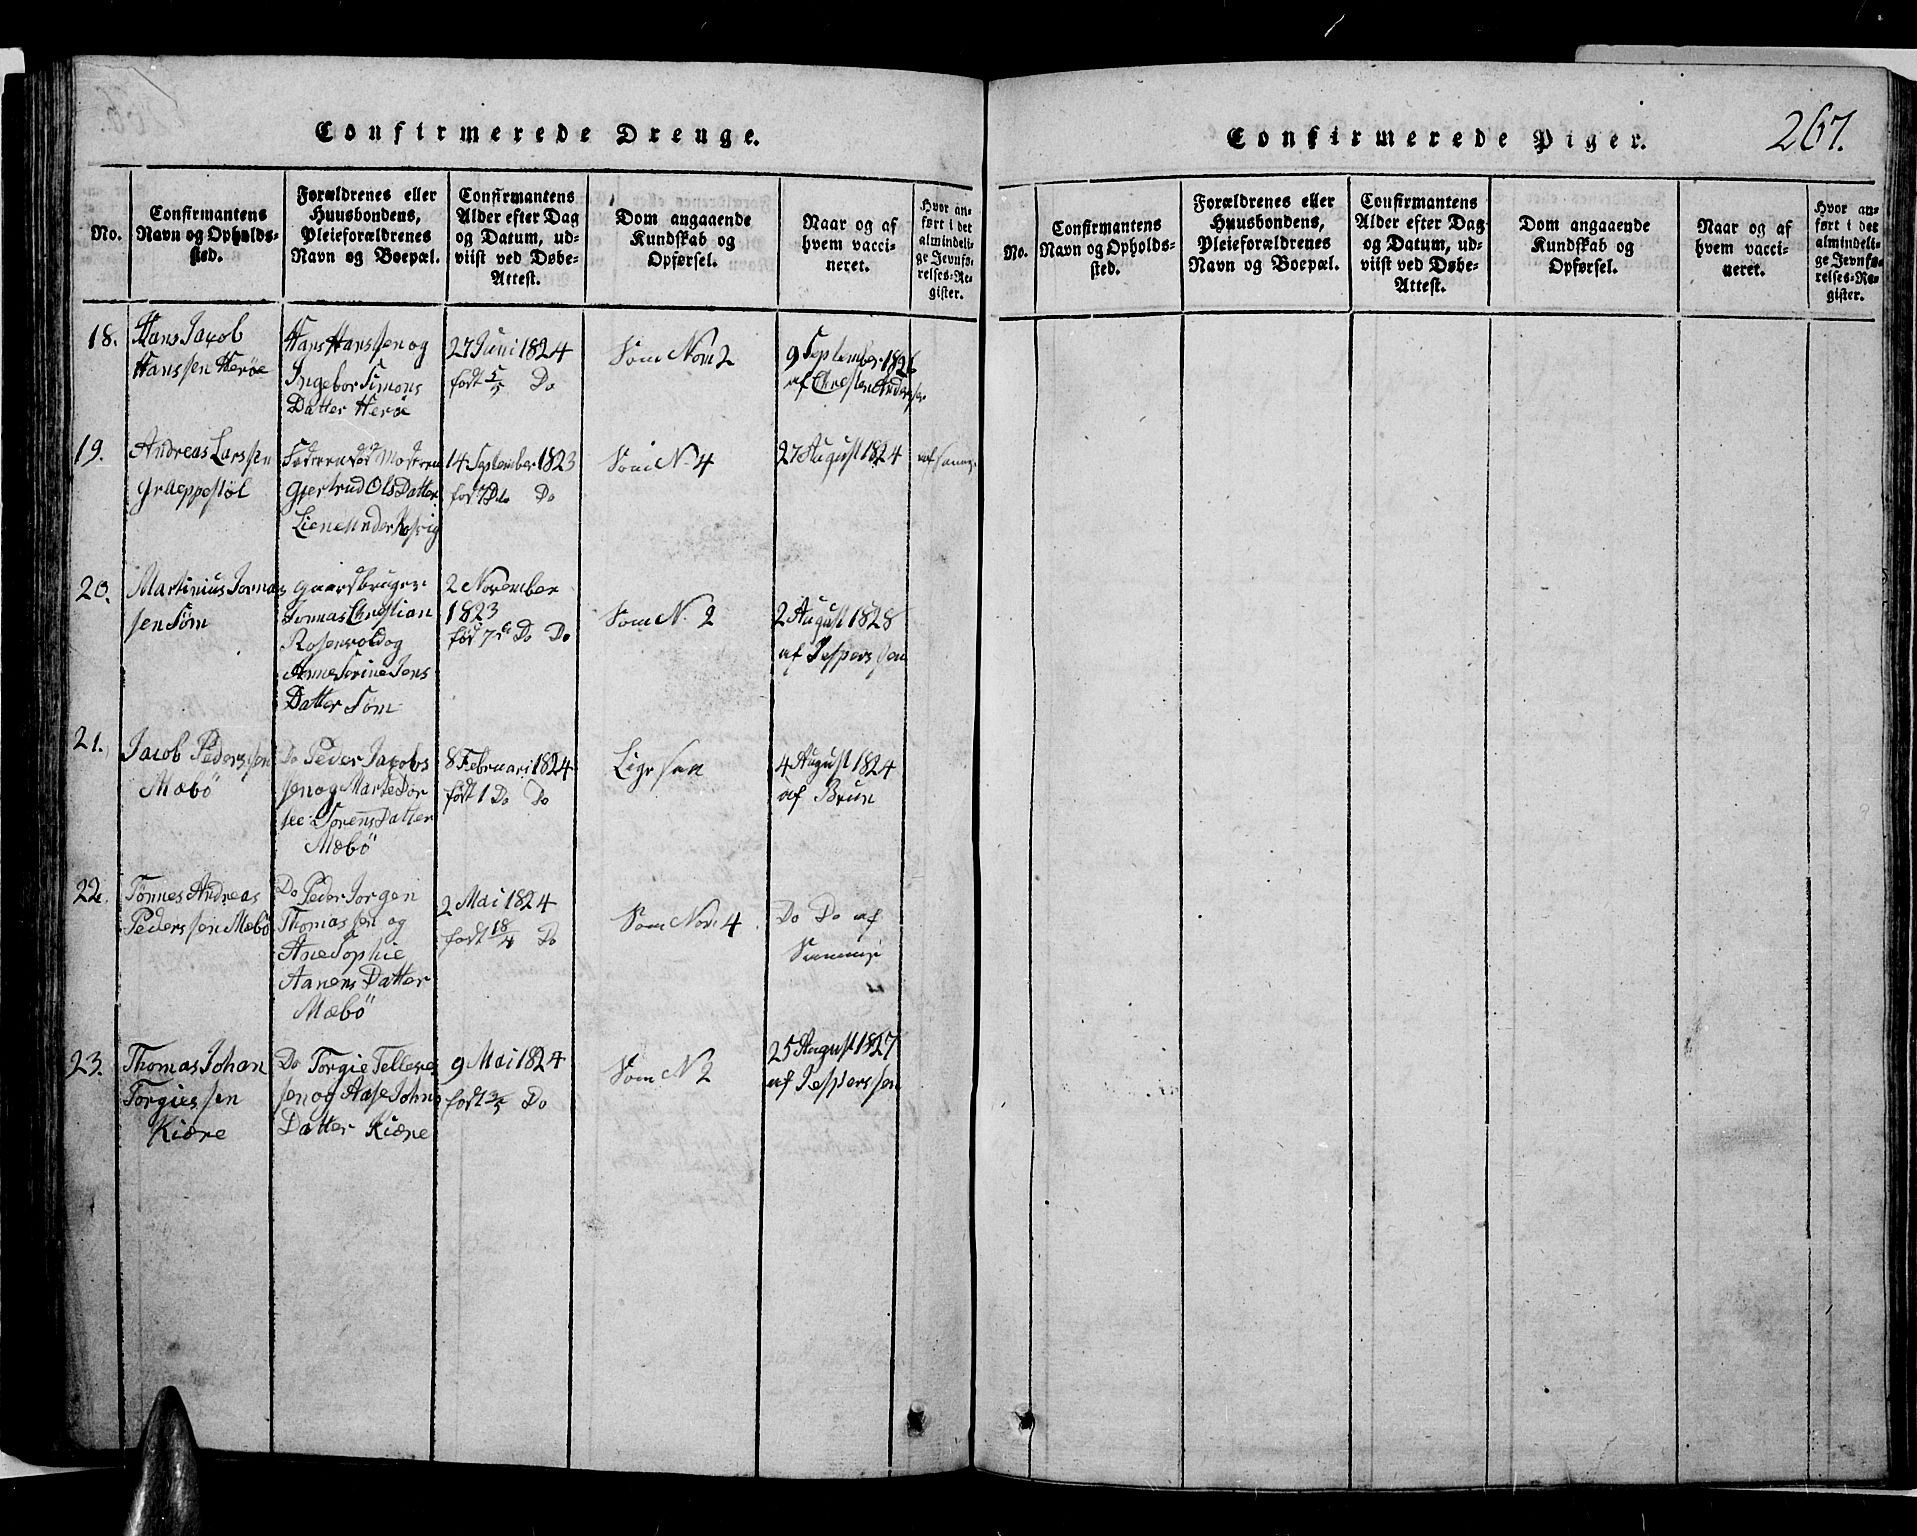 Confirmerede Drenge.
No.
Confirmantens
Navn og Opholds-
sted.
Forældrenes eller
Huusbondens,
Pleieforældrenes
Navn og Boepæl.
Confirmantens
Alder efter Dag
og Datum, ud-
viist ved Døbe-
Attest.
Dom angaaende
Kundskab og
Opførsel.
Naar og af
hvem vacci-
neret.
Hvor an-
ført i det
almindeli-
ge Jevnfø-
relses-Re-
gister.
18.
Hans Jacob
Hanssen Herøe
Hans Hanssen og
Ingebor Simons
Datter Herøe
27 Juni 1824
født 5/5 Do
Som Nom 2
9 September 1826
af Chresten Andersen
19.
Andreas Larssen
Græppestøl
Faderen død Moderen
Gjertrud Ols Datter
Liene under
14 September 1823
Do
Som N. 4
27 August 1824
20.
Martinius Tornas
sen Tøm
Gaardbruger
Tonnas Chrestian
Rosenvold og
Anne Torine Jens
Datter Tøm
2 November
1823
fød 7de Do Do
Som N. 2
2 August 1828
af Jesperssen
21.
Jacob Pederssen
Mæbø
Do Peder Jacobs
sen og Marte Dor
the Torens Datter
Mæbø
8 Februari 1824
født 1 Do Do
Ligesaa
4 August 1824
af Brun
22.
Tønnes Andreas
Pederssen Mæbø
Do Peder Jorgen
Thomassen og
Ane Sophie
Aanens Datter
Mæbø
2 Mai 1824
født 18/4 Do
Som Nom 4
Do Do af
23.
Thomas Johan
Torgiessen
Kiære
Do Torgie Tellefs
sen og Aase Johns
Datter Kiære
9 Mai 1824
født 3/5 Do
Som N 2
25 August 1827
af Jesperssen
Confirmerede Piger.
267.
No.
Confirmantens
Navn og Opholds-
sted.
Forældrenes eller
Huusbondens,
Pleieforældrenes
Navn og Boepæl.
Confirmantens
Alder efter Dag
og Datum, ud-
viist ved Døbe-
Attest.
Dom angaaende
Kundskab og
Opførsel.
Naar og af
hvem vacci-
neret.
Hvor an-
ført i det
almindeli-
ge Jevnfø-
relses-Re-
gister.